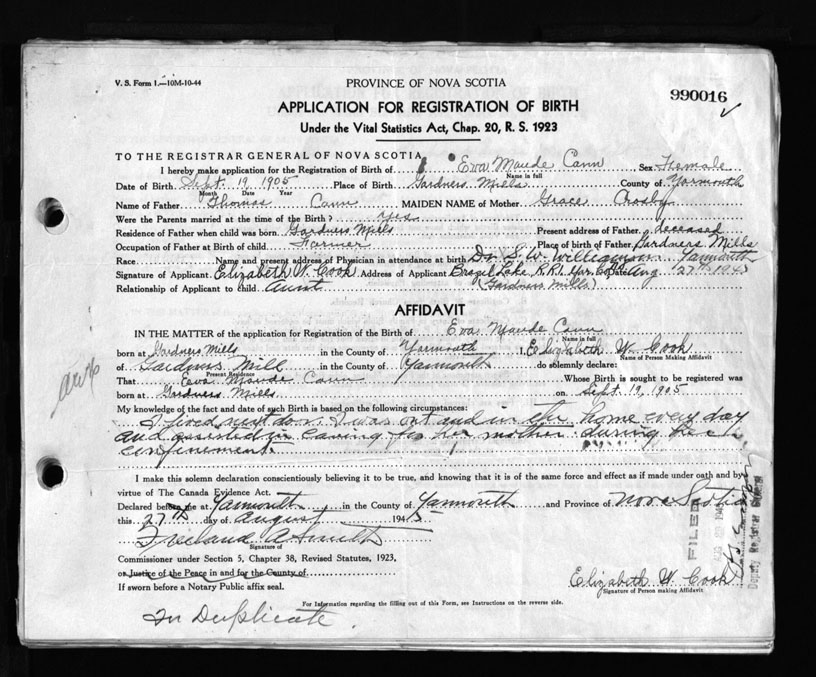 V. S. Form 1.—10M-10-44
PROVINCE OF NOVA SCOTIA
990016
APPLICATION FOR REGISTRATION OF BIRTH
Under the Vital Statistics Act, Chap. 20, R. S. 1923
TO THE REGISTRAR GENERAL OF NOVA SCOTIA
I hereby make application for the Registration of Birth of Eva Maude Cann Sex Female
Name in full
Date of Birth Sept. 19 1905 Place of Birth Gardners Mills County of Yarmouth
Month Date Year
Name of Father Thomas Cann MAIDEN NAME of Mother Grace Crosby
Were the Parents married at the time of the Birth? Yes
Residence of Father when child was born Gardners Mills Present address of Father deceased
Occupation of Father at Birth of child Farmer Place of birth of Father Gardners Mills
Race Name and present address of Physician in attendance at birth Dr. S. W. Williamson Yarmouth
Signature of Applicant Elizabeth W. Cook Address of Applicant Brazil Lake, R.R1. Yar. Co. Date Aug 27th 1945
Relationship of Applicant to child Aunt (Gardners Mills)
AFFIDAVIT
IN THE MATTER of the application for Registration of the Birth of Eva Maude Cann
Name in full
born at Gardners Mills in the County of Yarmouth I, Elizabeth W. Cook
Name of Person Making Affidavit
of Gardners Mill in the County of Yarmouth do solemnly declare:
Present Residence
That Eva Maude Cann Whose Birth is sought to be registered was
born at Gardners Mills on Sept. 19, 1905
My knowledge of the fact and date of such Birth is based on the following circumstances:
I lived next door. I was out and in the home every day
and assisted in caring for her mother during her
confinement.
I make this solemn declaration conscientiously believing it to be true, and knowing that it is of the same force and effect as if made under oath and by
virtue of The Canada Evidence Act.
Declared before me at Yarmouth in the County of Yarmouth and Province of Nova Scotia
this 27th day of August 1945
Signature of
Commissioner under Section 5, Chapter 38, Revised Statutes, 1923,
or Justice of the Peace in and for the County of
If sworn before a Notary Public affix seal.
Elizabeth W. Cook
Signature of Person making Affidavit
For Information regarding the filling out of this Form, see Instructions on the reverse side.
In Duplicate.
FILED
Deputy Registrar General